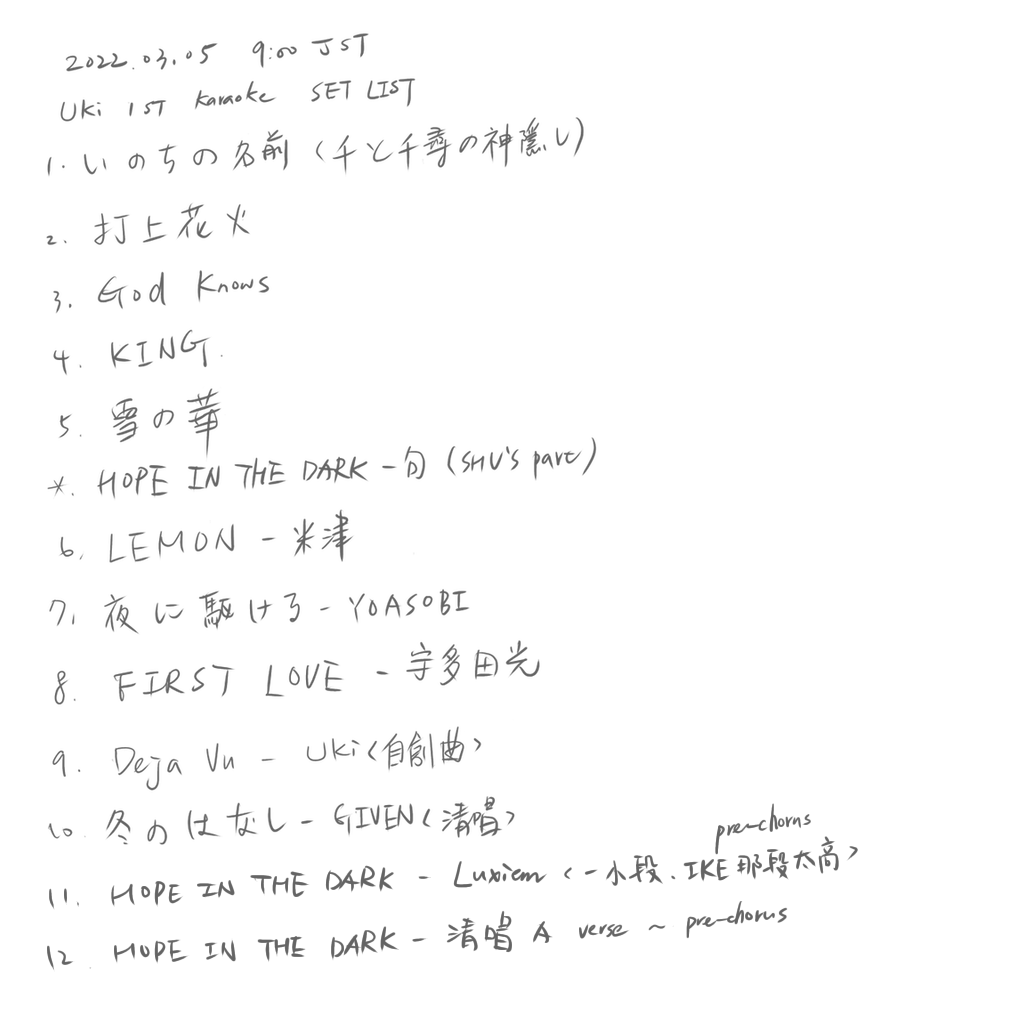 2022.03.05 9:00 JST
Uki 1ST Karaoke SET LIST
1. いのちの名前 (千と千尋の神隠し)
2. 打上花火
3. God Knows
4. KING.
5. 雪の華
*. HOPE IN THE DARK - 一句 (SHU's part)
6. LEMON - 米津
7. 夜に駆ける - YOASOBI
8. FIRST LOVE - 宇多田光
9. Deja Vu - Uki <自創曲>
10. 冬のはなし - GIVEN <清唱>
pre-chorus
11. HOPE IN THE DARK - Luxiem <一小段、IKE 那段太高>
12. HOPE IN THE DARK - 清唱 A verse ~ pre-chorus